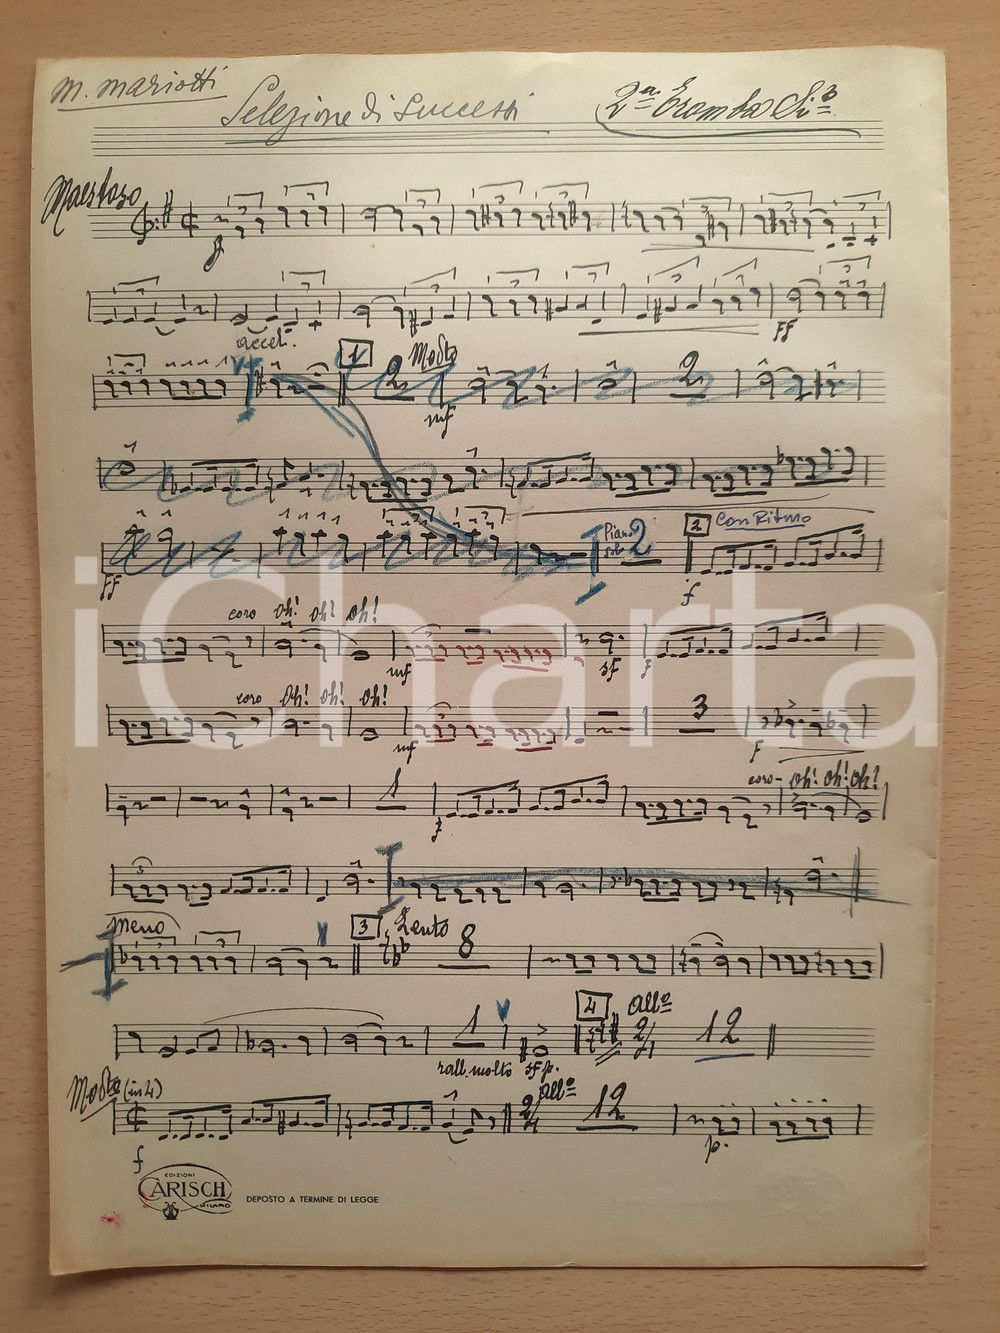 M. Mariotti
Selezione di Successi
2ª Tromba Si b
Maestoso
f
accel.
ff
1 Modto
2 2
mf
ff
Piano solo 2
2 Con Ritmo
f
coro oh! oh! oh!
mf sf f
coro oh! oh! oh!
3
mf f
coro - oh! oh! oh!
1
f
3
Meno
3 Lento
8
4 Allo
1 2/4 12
rall. molto sf p.
Modto (in 4)
Allo
2/4 12
f p.
EDIZIONI
CARISCH
MILANO
DEPOSTO A TERMINE DI LEGGE
iCharta